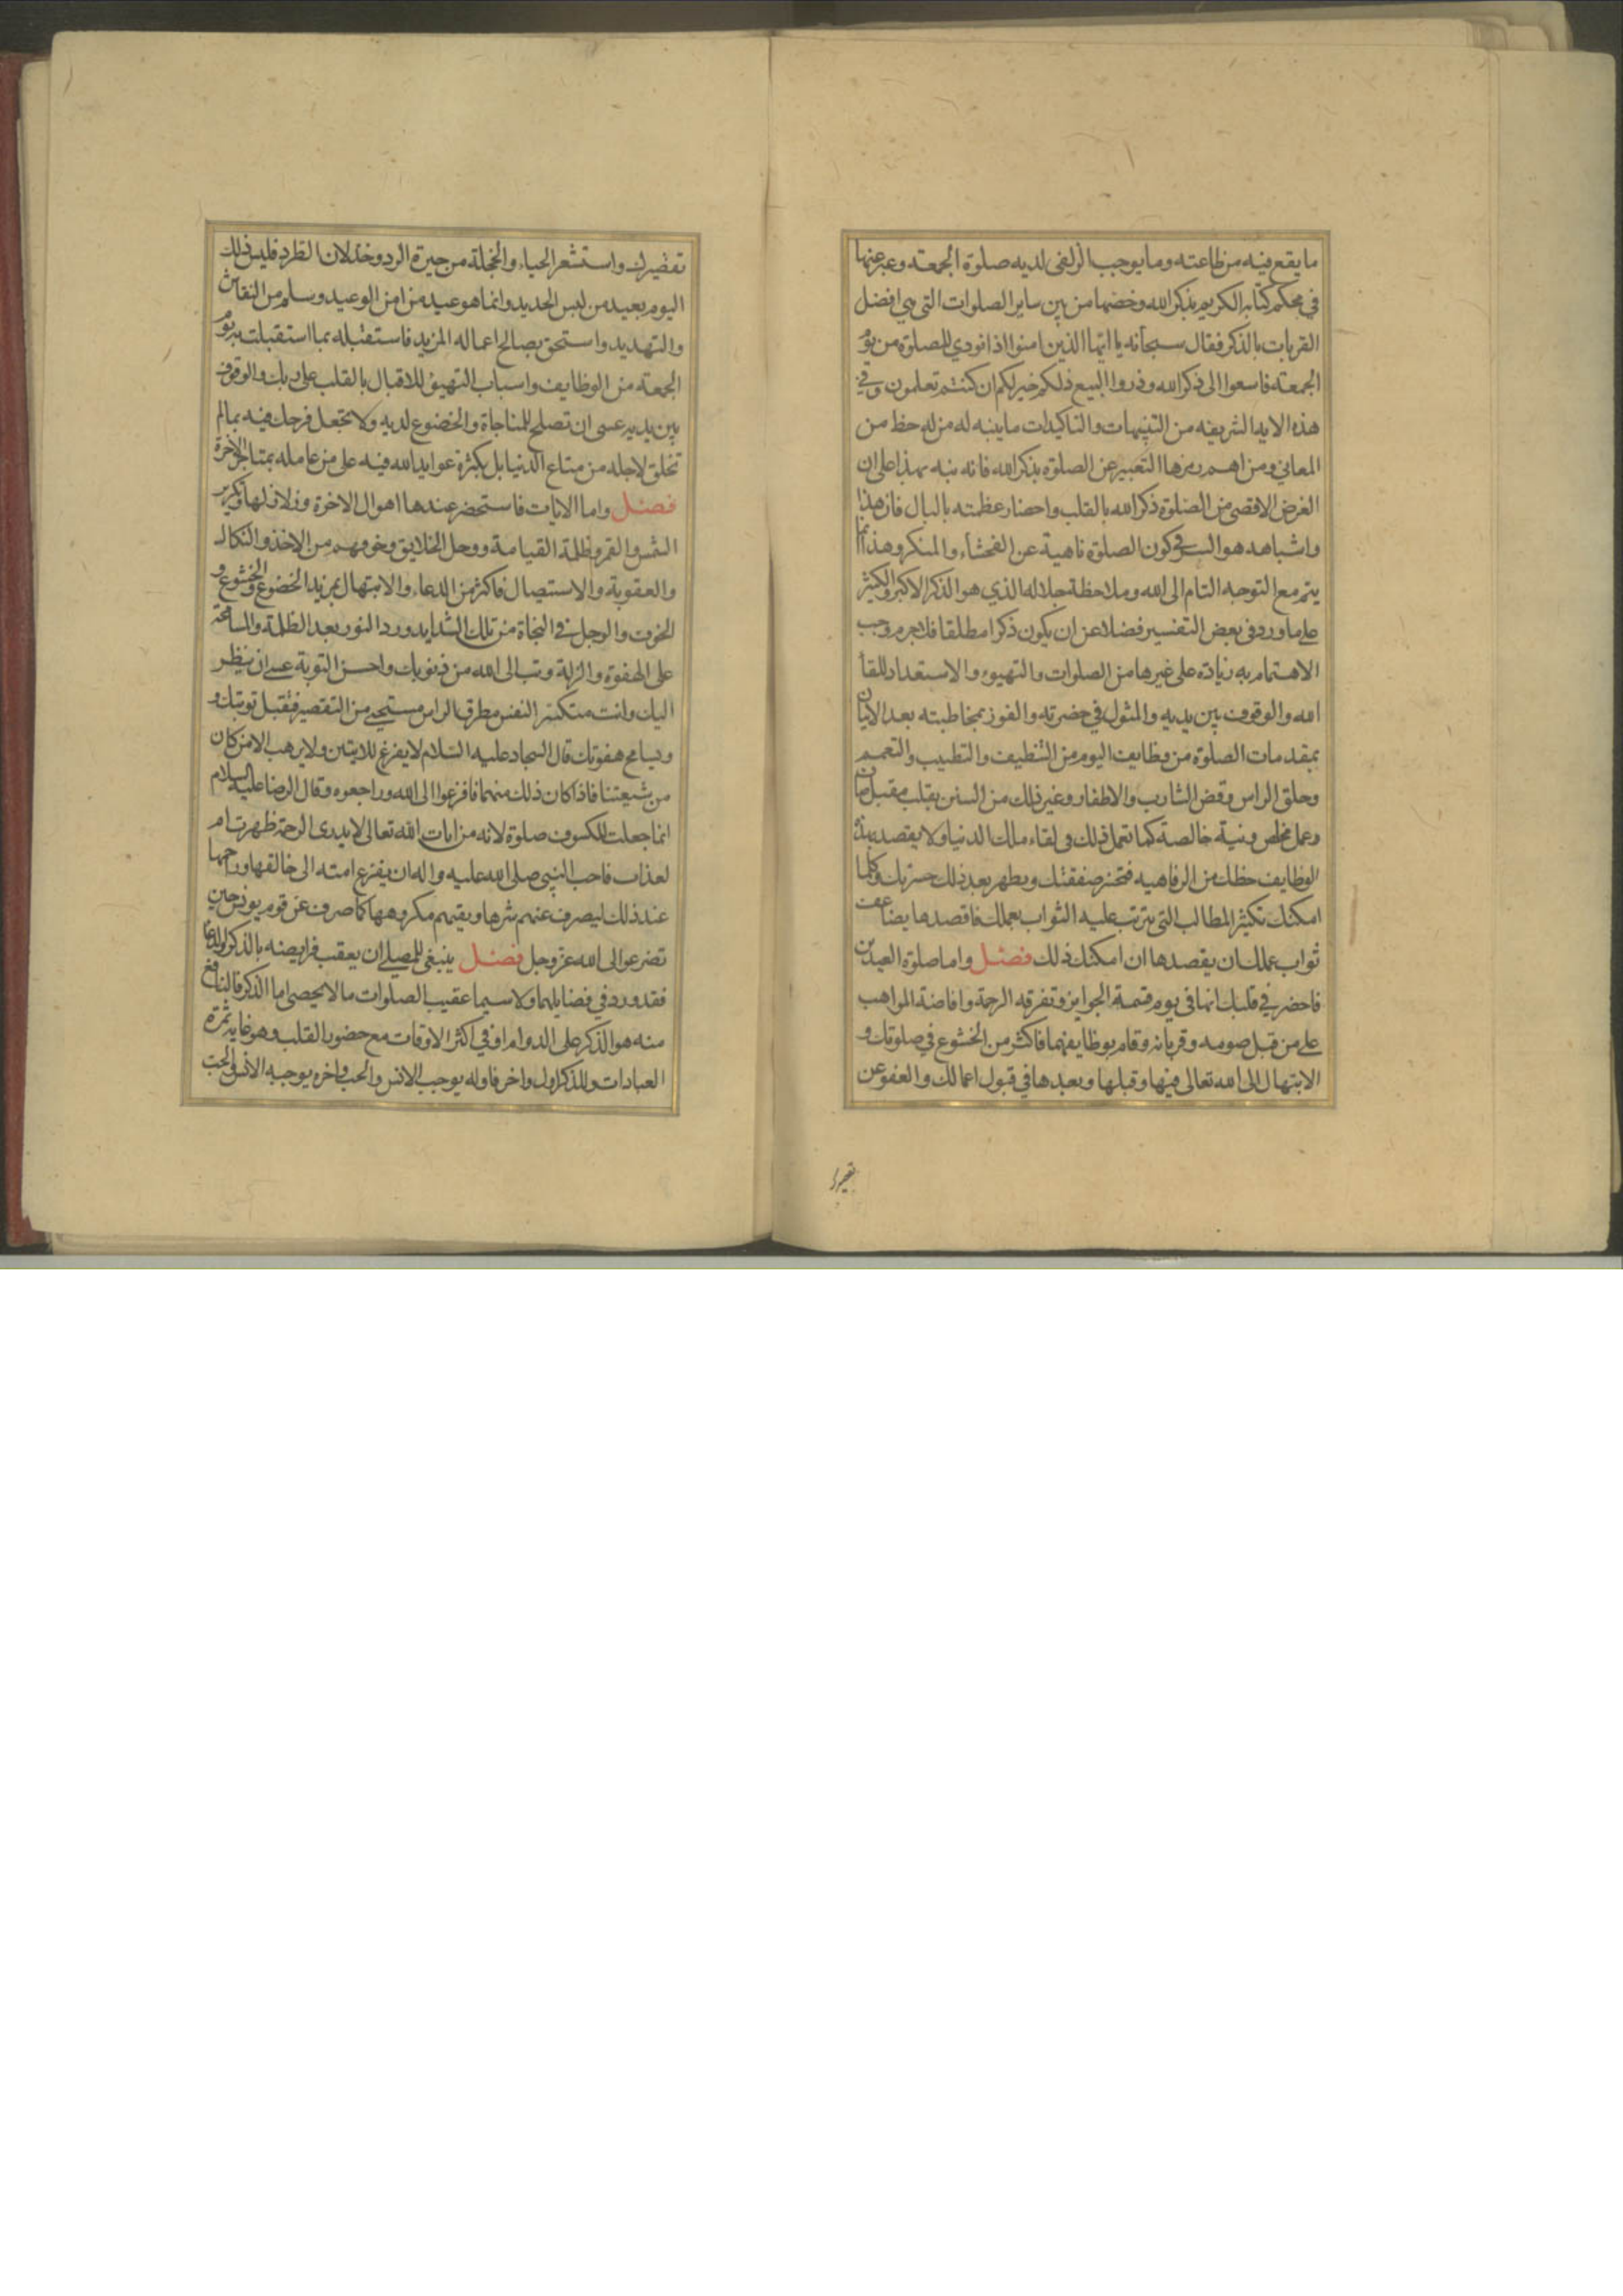 ما يقع فيه من طاعته وما يوجب الزلفى لديه صلوة الجمعة وعبر عنها
في محكم كتابه الكريم بذكر الله وخصها من بين ساير الصلوات التى هى افضل
القربات بالذكر فقال سبحانه يا ايها الذين امنوا اذا نودي للصلوة من يوم
الجمعة فاسعوا الى ذكر الله وذروا البيع ذلكم خير لكم ان كنتم تعلمون وفي
هذه الاية الشريفه من التنبيهات والتاكيدات ما ينبه له من له حظ من
المعاني ومن اهم رمزها التعبير عن الصلوة بذكر الله فانه نبه بهذا على ان
الغرض الاقصى من الصلوة ذكر الله بالقلب واحضار عظمته بالبال فان هذا
واشباهه هو السر في كون الصلوة ناهية عن الفحشاء والمنكر وهذا انما
يتم مع التوجه التام الى الله وملاحظة جلاله الذي هو الذكر الاكبر والكثير
على ما ورد فى بعض التفسير فضلا عن ان يكون ذكرا مطلقا فلا جرم وجب
الاهتمام به زيادة على غيرها من الصلوات والتهيوء والاستعداد للقا
الله والوقوف بين يديه والمثول في حضرته والفوز بمخاطبته بعد الاتيان
بمقدمات الصلوة من وظايف اليوم من التنظيف والتطيب والتعمم
وحلق الراس وقص الشارب والاظفار وغير ذلك من السنن بقلب مقبل صاف
وعمل مخلص ونية خالصة كما تعمل ذلك فى لقاء ملك الدنيا ولا يقصد بهذه
الوظايف حظك من الرفاهيه فتخسر صفقتك ويظهر بعد ذلك حسرتك وكلما
امكنك تكثير المطالب التى يترتب عليه الثواب بعملك فاقصدها يضاعف
ثواب عملك ان يقصدها ان امكنك ذلك فصل واما صلوة العيدين
فاحضر في قلبك انها فى يوم قسمة الجوايز وتفرقه الرحمة وافاضة المواهب
على من قبل صومه وقربانه وقام بوظايفهما فاكثر من الخشوع في صلوتك و
الابتهال الى الله تعالى فيها وقبلها وبعدها في قبول اعمالك والعفو عن
تقصيرك
تقصيرك واستشعر الحياء والخجلة من حيرة الرد وخذلان الطرد فليس ذلك
اليوم بعيد من لبس الجديد وانما هو عيد من امن الوعيد وسلم من النقاش
والتهديد واستحق بصالح اعماله المزيد فاستقبله بما استقبلت به يوم
الجمعة من الوظايف واسباب التهيؤ للاقبال بالقلب على ربك والوقوف
بين يديه عسى ان تصلح للمناجاة والخضوع لديه ولا تجعل فرحك فيه بما لم
تخلق لاجله من متاع الدنيا بل بكثرة عوايد الله فيه على من عامله بمتاجر الاخرة
فصل واما الايات فاستحضر عندها اهوال الاخرة وزلازلها وتكوير
الشمس والقمر وظلمة القيامة ووجل الخلايق وخوفهم من الاخذ والنكال
والعقوبة والاستيصال فاكثر من الدعاء والابتهال بمزيد الخضوع والخشوع و
الخوف والوجل في النجاة من تلك الشدايد ورد النور بعد الظلمة والمسامحة
على الهفوة والزلة وتب الى الله من ذنوبك واحسن التوبة عسى ان ينظر
اليك وانت منكسر النفس مطرق الراس مستحيي من التقصير فتقبل توبتك و
ويسامح هفوتك قال السجاد عليه السلام لا يفزع للايتين ولا يرهب الا من كان
من شيعتنا فاذا كان ذلك منهما فافزعوا الى الله وراجعوه وقال الرضا عليه السلام
انما جعلت للكسوف صلوة لانه من ايات الله تعالى لا يدرى الرحمة ظهرت ام
لعذاب فاحب النبي صلى الله عليه واله ان يفزع امته الى خالقها وراحمها
عند ذلك ليصرف عنهم شرها ويقيهم مكروهها كما صرف عن قوم يونس حين
تضرعوا الى الله عز وجل فصل ينبغي للمصلي ان يعقب فرايضه بالذكر والدعا
فقد ورد في فضايلهما ولا سيما عقيب الصلوات ما لا يحصى اما الذكر فالنافع
منه هو الذكر على الدوام او في اكثر الاوقات مع حضور القلب وهو غاية ثمرة
العبادات وللذكر اول واخر فاوله يوجب الانس والحب واخره يوجبه الانس والحب